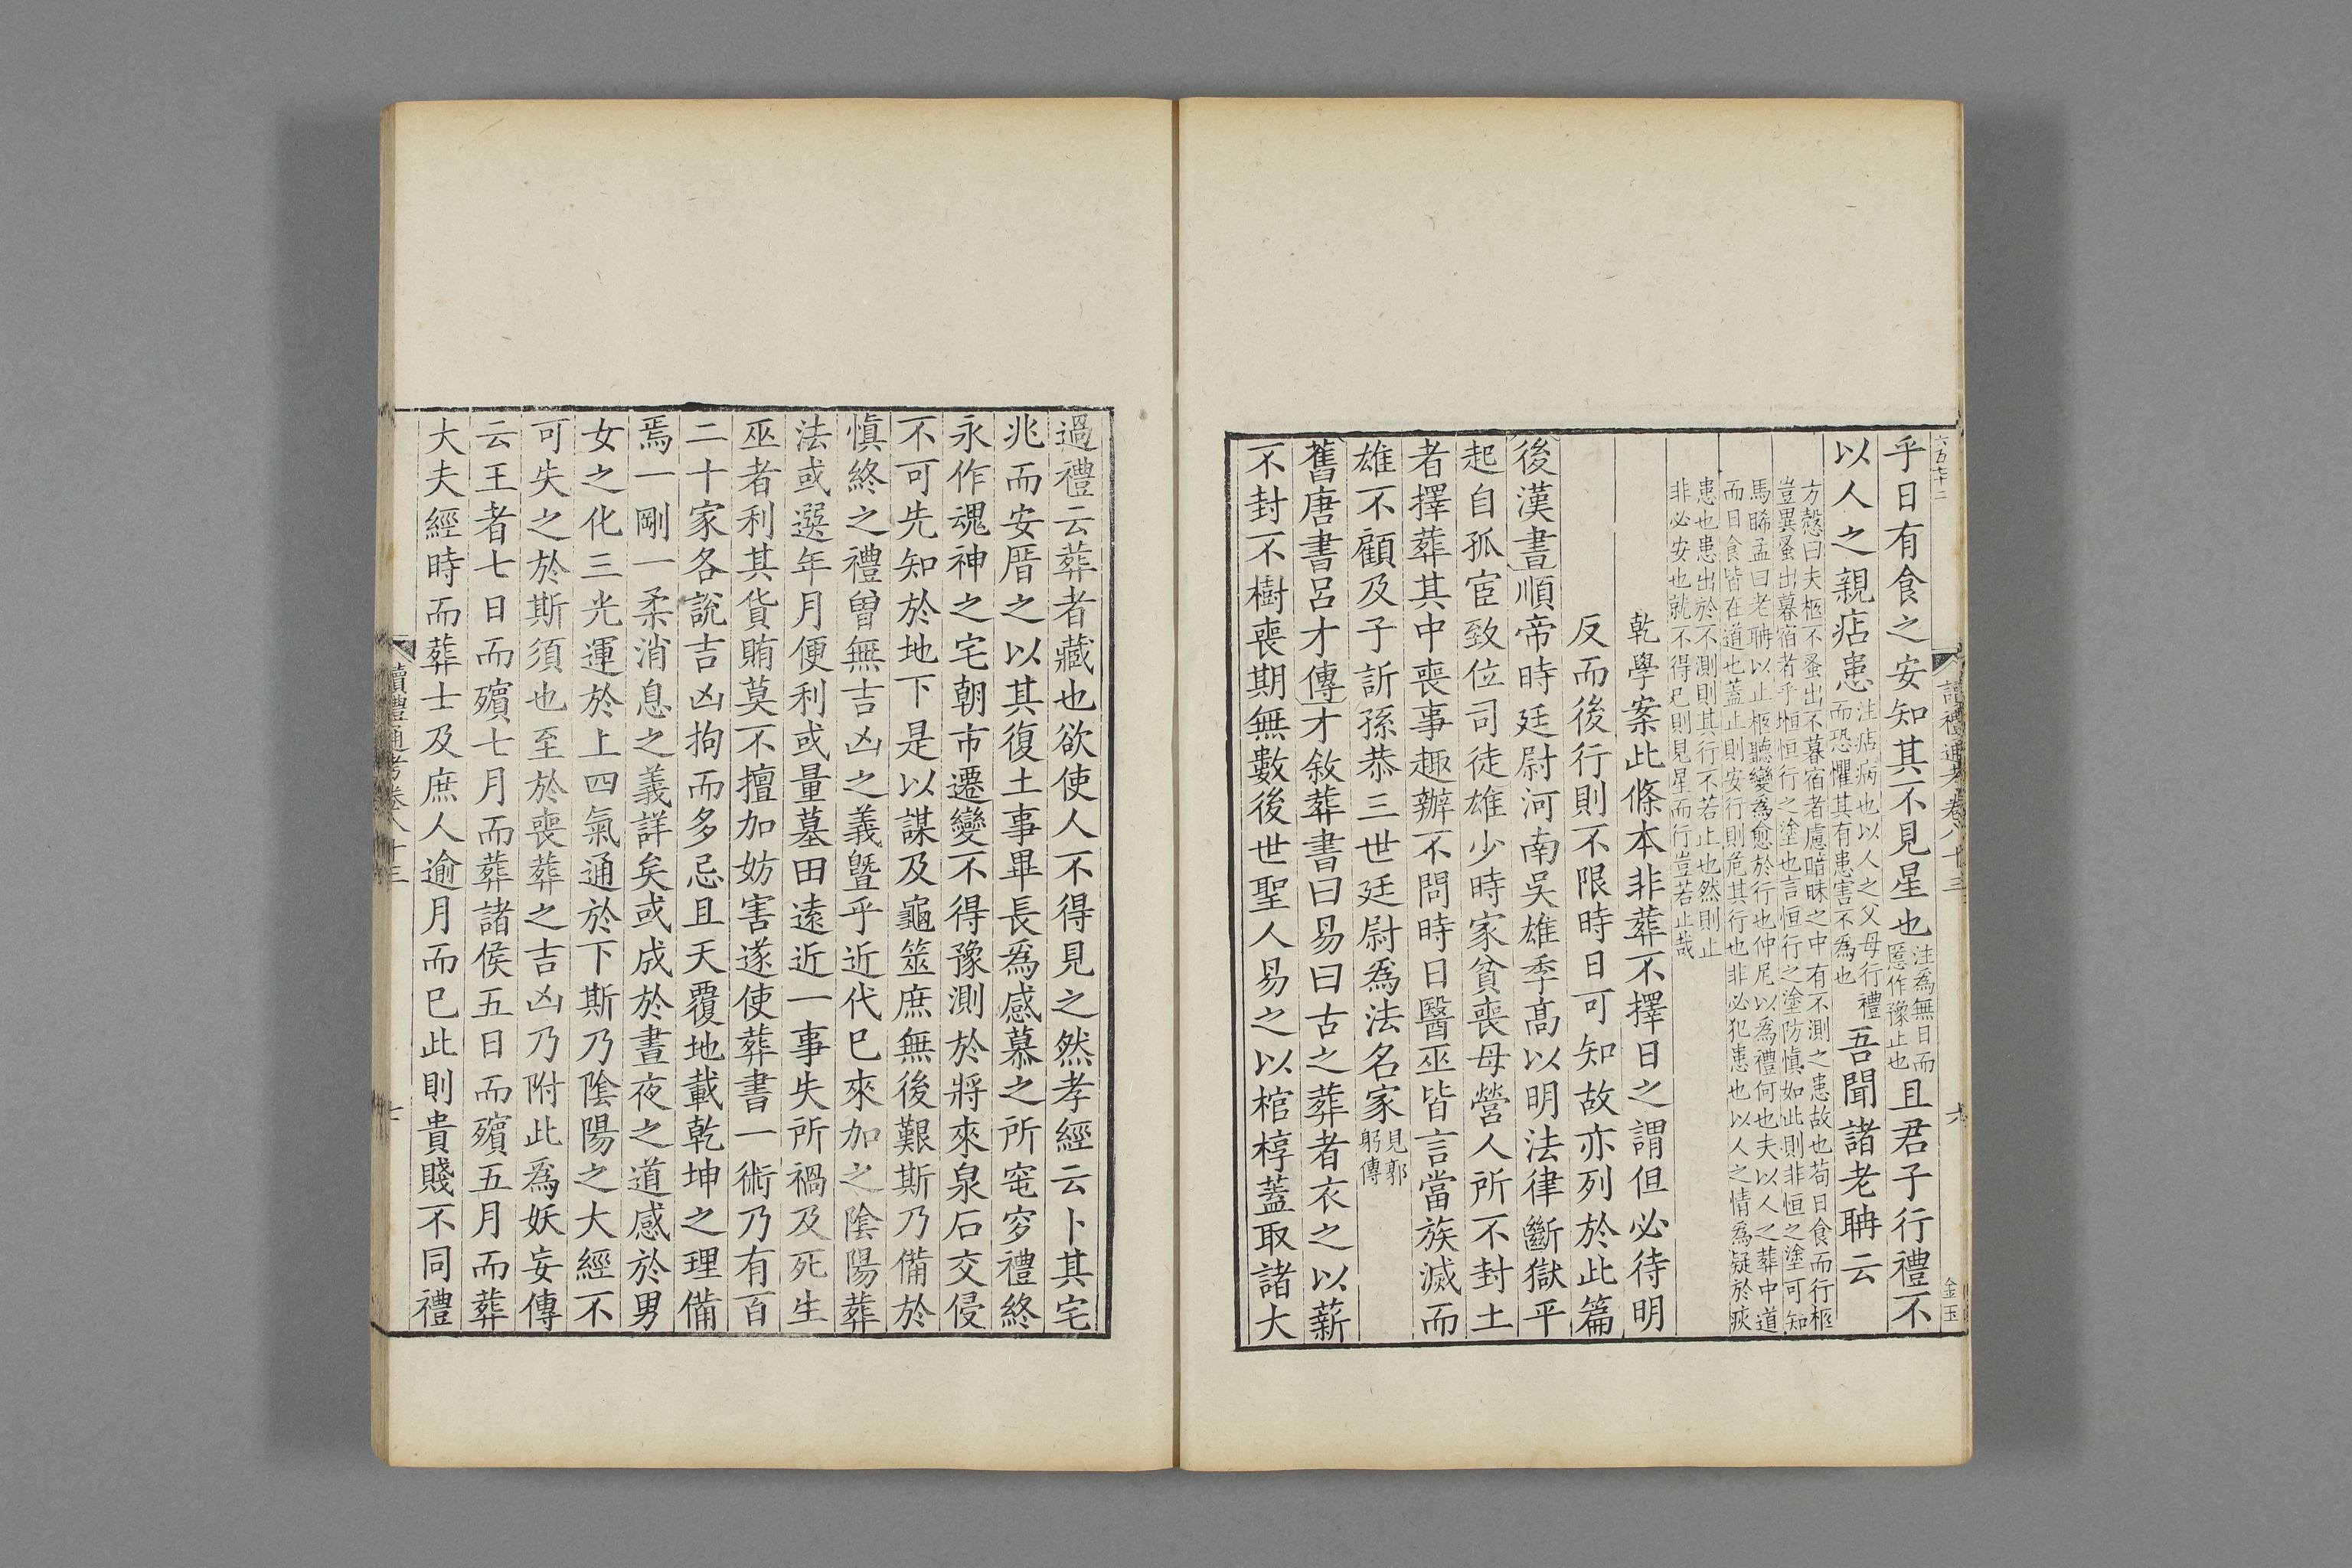 六百七十二
讀禮通考卷八十三
六
金玉
乎日有食之安知其不見星也注爲無日而慝作豫止也且君子行禮不
以人之親痁患注痁病也以人之父母行禮而恐懼其有患害不爲也吾聞諸老聃云
方慤曰夫柩不蚤出不暮宿者慮暗昧之中有不測之患故也苟日食而行柩
豈異蚤出暮宿者乎堩恒行之塗也言恒行之塗防愼如此則非恒之塗可知
馬晞孟曰老聃以止柩聽變爲愈於行也仲尼以爲禮何也夫以人之葬中道
而日食皆在道也蓋止則安行則危其行也非必犯患也以人之情爲疑於疢
患也患出於不測則其行不若止也然則止
非必安也就不得已則見星而行豈若止哉
乾學案此條本非葬不擇日之謂但必待明
反而後行則不限時日可知故亦列於此篇
後漢書順帝時廷尉河南吳雄季高以明法律斷獄平
起自孤宦致位司徒雄少時家貧喪母營人所不封土
者擇葬其中喪事趣辦不問時日醫巫皆言當族滅而
雄不顧及子訢孫恭三世廷尉爲法名家見郭躬傳
舊唐書呂才傳才敘葬書曰易曰古之葬者衣之以薪
不封不樹喪期無數後世聖人易之以棺椁蓋取諸大
過禮云葬者藏也欲使人不得見之然孝經云卜其宅
兆而安厝之以其復土事畢長爲感慕之所窀穸禮終
永作魂神之宅朝市遷變不得豫測於將來泉石交侵
不可先知於地下是以謀及龜筮庶無後艱斯乃備於
愼終之禮曾無吉凶之義曁乎近代已來加之陰陽葬
法或選年月便利或量墓田遠近一事失所禍及死生
巫者利其貨賄莫不擅加妨害遂使葬書一術乃有百
二十家各說吉凶拘而多忌且天覆地載乾坤之理備
焉一剛一柔消息之義詳矣或成於晝夜之道感於男
女之化三光運於上四氣通於下斯乃陰陽之大經不
可失之於斯須也至於喪葬之吉凶乃附此爲妖妄傳
云王者七日而殯七月而葬諸侯五日而殯五月而葬
大夫經時而葬士及庶人逾月而已此則貴賤不同禮
讀禮通考卷八十三
七